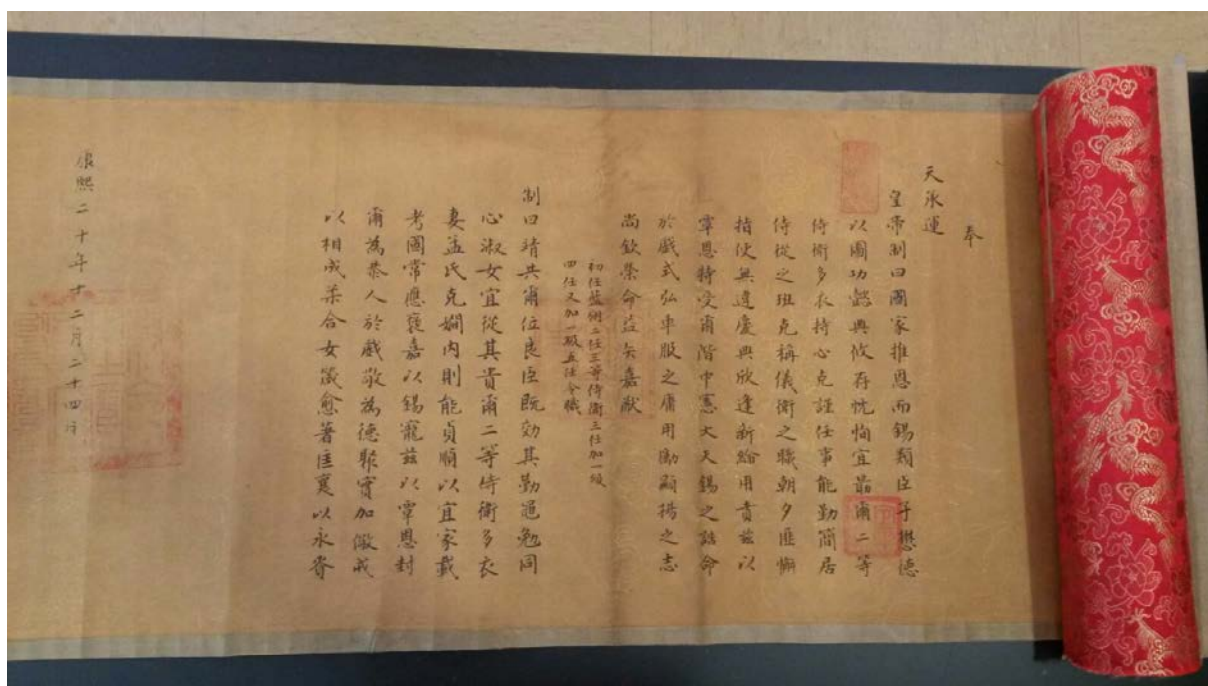 奉
天承運
皇帝制曰國家推恩而錫類臣子懋德
以圖功懿典攸存忱恂宜勗爾二等
侍衛多衣持心克謹任事能勤簡居
侍從之班克稱儀衛之職朝夕匪懈
指使無違慶典欣逢新綸用賁茲以
覃恩特受爾階中憲大夫錫之誥命
於戲式弘車服之庸用勵顯揚之志
尚欽榮命益矢嘉猷
初任藍翎二任三等侍衛三任加一級
四任又加一級五任今職
制曰靖共爾位良臣既効其勤黽勉同
心淑女宜從其貴爾二等侍衛多衣
妻孟氏克嫻內則能貞順以宜家載
考國常應褒嘉以錫寵茲以覃恩封
爾為恭人於戲敬為德聚實加儆戒
以相成柔合女箴愈著匡襄以永眷
康熙二十年十二月二十四日